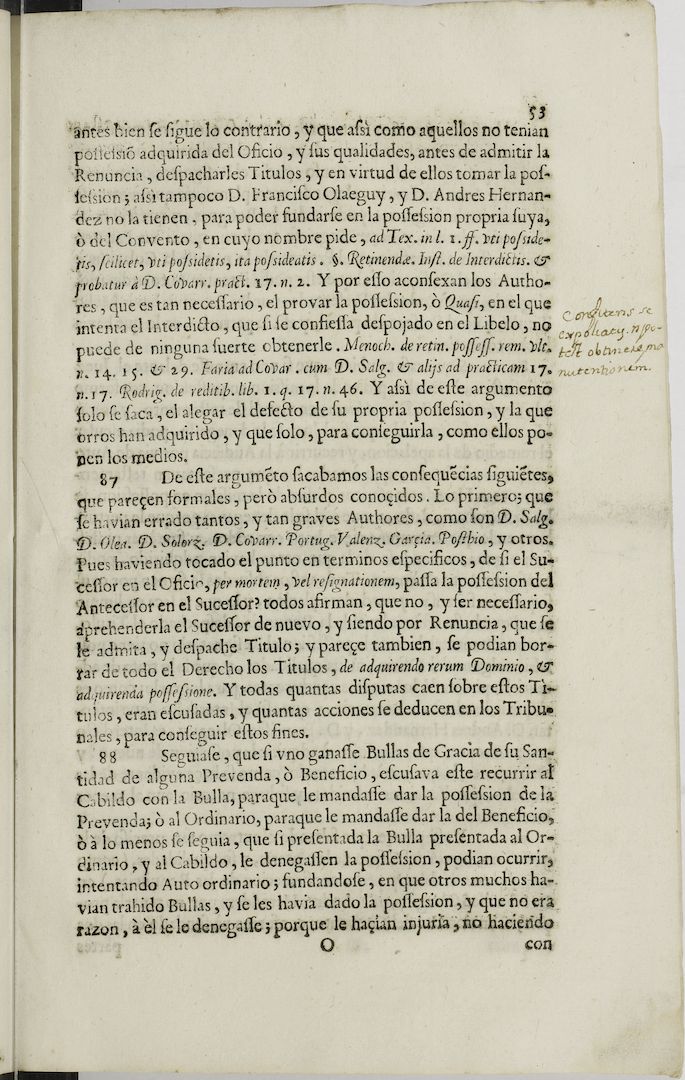 53
antes bien ſe ſigue lo contrario, y que aſsì como aquellos no tenian
poſſeſsiõ adquirida del Oficio, y ſus qualidades, antes de admitir la
Renuncia, deſpacharles Titulos, y en virtud de ellos tomar la poſ-
ſeſsion; aſsì tampoco D. Franciſco Olaeguy, y D. Andres Hernan-
dez no la tienen, para poder fundarſe en la poſſeſsion propria ſuya,
ò del Convento, en cuyo nombre pide, ad Tex. in l. 1. ff. vti poſside-
tis, ſcilicet, vti poſsidetis, ita poſsideatis. §. Retinendæ. Inſt. de Interdictis. &
probatur à D. Covarr. pract. 17. n. 2. Y por eſſo aconſexan los Autho-
res, que es tan neceſſario, el provar la poſſeſsion, ò Quaſi, en el que
intenta el Interdicto, que ſi ſe confieſſa deſpojado en el Libelo, no
puede de ninguna ſuerte obtenerle. Menoch. de retin. poſſeſſ. rem. vlt.
n. 14. 15. & 29. Faria ad Covar. cum D. Salg. & alijs ad practicam 17.
n. 17. Rodrig. de reditib. lib. 1. q. 17. n. 46. Y aſsì de eſte argumento
ſolo ſe ſaca, el alegar el defecto de ſu propria poſſeſsion, y la que
otros han adquirido, y que ſolo, para conſeguirla, como ellos po-
nen los medios.
Confitens se
expoliatũ. n po-
test obtinere ma
nutentionem.
87 De eſte argumẽto ſacabamos las conſequẽcias ſiguiẽtes,
que pareçen formales, però abſurdos conoçidos. Lo primero; que
ſe havian errado tantos, y tan graves Authores, como ſon D. Salg.
D. Olea. D. Solorz. D. Covarr. Portug. Valenz. Garçia. Poſthio, y otros.
Pues haviendo tocado el punto en terminos eſpecificos, de ſi el Su-
ceſſor en el Oficio, per mortem, vel reſignationem, paſſa la poſſeſsion del
Anteceſſor en el Suceſſor? todos afirman, que no, y ſer neceſſario,
aprehenderla el Suceſſor de nuevo, y ſiendo por Renuncia, que ſe
le admita, y deſpache Titulo; y pareçe tambien, ſe podian bor-
rar de todo el Derecho los Titulos, de adquirendo rerum Dominio, &
adquirenda poſſeſsione. Y todas quantas diſputas caen ſobre eſtos Ti-
tulos, eran eſcuſadas, y quantas acciones ſe deducen en los Tribu-
nales, para conſeguir eſtos fines.
88 Seguiaſe, que ſi vno ganaſſe Bullas de Gracia de ſu San-
tidad de alguna Prevenda, ò Beneficio, eſcuſava eſte recurrir al
Cabildo con la Bulla, paraque le mandaſſe dar la poſſeſsion de la
Prevenda; ò al Ordinario, paraque le mandaſſe dar la del Beneficio,
ò à lo menos ſe ſeguia, que ſi preſentada la Bulla preſentada al Or-
dinario, y al Cabildo, le denegaſſen la poſſeſsion, podian ocurrir,
intentando Auto ordinario; fundandoſe, en que otros muchos ha-
vian trahido Bullas, y ſe les havia dado la poſſeſsion, y que no era
razon, à èl ſe le denegaſſe; porque le haçian injuria, no haciendo
O con